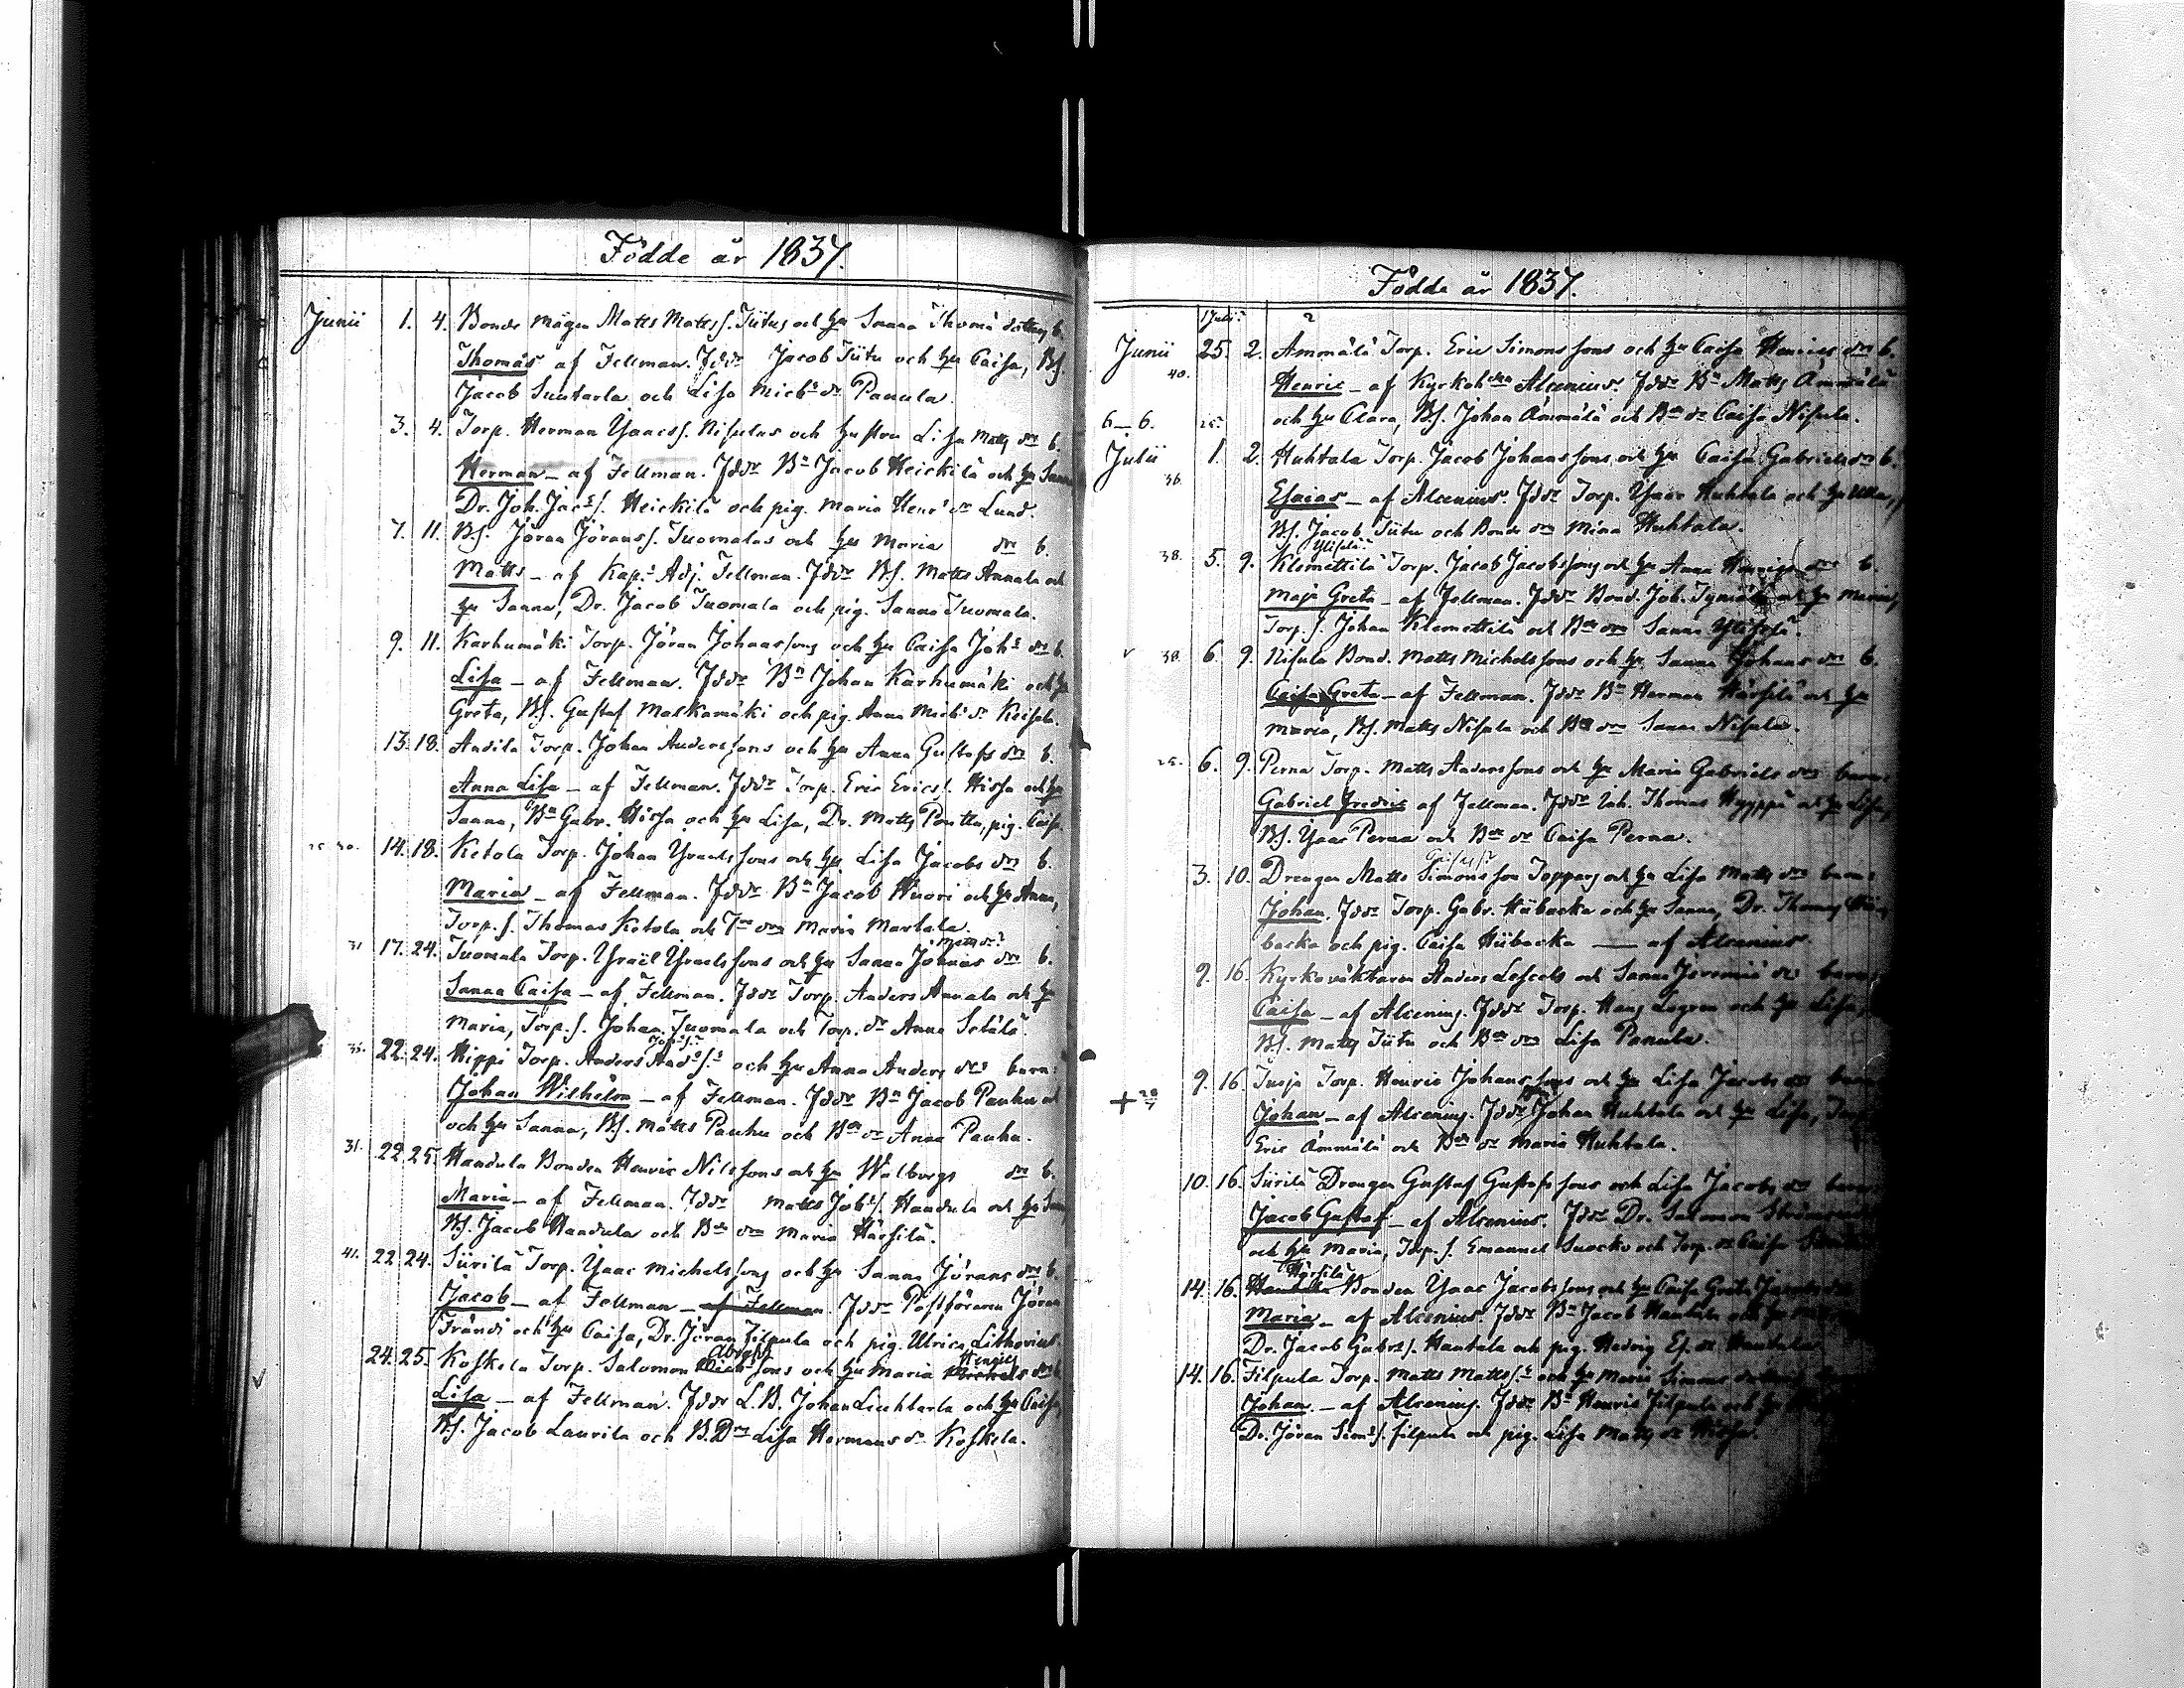 Födde år 1837.
Junii 1. 4. Bonde mågen Matts Mattss. Tiitus och hu Sanna Thomæ dotters b.
Thomas af Fellman. Fddr Jacob Tiitu och hu Caisa, Bs.
Jacob Suutarla och Lisa Michs dr Panula.
3. 4. Torp. Herman Ysaacs. Nisulas och hustru Lisa Matts drs b.
Herman – af Fellman. Fddr Bn Jacob Heickilä och hu Sanna
Dr. Joh. Jacs s. Heickilä och pig. Maria Henrs dr Lund.
7. 11. Bs. Jöran Jöranss. Tuomalas och hus Maria drs b.
Matts – af Kaps Adj. Fellman. Fddr Bs. Matts Annala och
hu Sanna, Dr. Jacob Tuomala och pig. Sanna Tuomala.
9. 11. Karhumäki Torp. Jöran Johanssons och hu Caisa Johs drs b.
Lisa – af Fellman. Fddr Bn Johan Karhumäki och hu
Greta, Bs. Gustaf Maskamäki och pig. Anna Michs dr Keisala.
13. 18. Andila Torp. Johan Anderssons och hu Anna Gustafs drs b.
Anna Lisa – af Fellman. Fddr Torp. Eric Erics s. Hissa och hu
Sanna, Bn Gabr. Hissa och hu Lisa, Dr. Matts Pentta, pig. Caisa
14. 18. Ketola Torp. Johan Ysraelssons och hu Lisa Jacobs drs b.
Maria – af Fellman. Fddr Bn Jacob Wuori och hu Anna,
Torp. s. Thomas Ketola och Tor drn Maria Martala.
Matts dr
31 17. 24. Tuomala Torp. Ysraël Ysraelssons och hu Sanna Johans drs b.
Sanna Caisa – af Fellman. Fddr Torp. Anders Annala och hu
Maria, Torp. s. Johan Tuomala och Torp. dr Anna Setälä.
35. 22. 24. Hippi Torp. Anders Ands s. s och hu Anna Anders drs barn:
Johan Wilhelm – af Fellman. Fddr Bn Jacob Pauhu och
och hu Sanna, Bs. Matts Pauhu och Bde dr Anna Pauhu.
31. 22. 25. Handula Bonden Henric Nilssons och hu Walborgs drs b.
Maria – af Fellman. Fddr Matts Jobs s. Handula och hu Sanna
Bs. Jacob Handula och Bde drn Maria Härsilä.
41. 22. 24. Siirilä Torp. Ysaac Michelssons och hu Sanna Jörans drs b.
Jacob – af Fellman – af Fellman. Fddr Postföraren Jöran
Frändi och hu Caisa, Dr. Jöran Filpula och pig. Ulrica Lithovius.
Abrahs Henrics
24. 25. Koskela Torp. Salomon Michssons och hu Maria Michels drs
Lisa – af Fellman. Fddr L.B. Johan Liuhtarla och hu Caisa,
Bs. Jacob Laurila och B. Drn Lisa Hermans dr Koskela.
Födde år 1837.
Julii
Junii 25. 2. Ämmälä Torp. Eric Simonssons och hu Caisa Henrics drs b.
40. Henric – af Kyrkohden Alcenius. Fddr Bn Matts Ämmälä
6–6. och hu Clara, Bs. Johan Ämmälä och Bde dr Caisa Nisula.
Julii 1. 2. Huhtala Torp. Jacob Johanssons och hu Caisa Gabriels drs b.
36. Esaias – af Alcenius. Fddr Torp. Ysaac Huhtala och hu Ulla,
Bs. Jacob Tiitu och Bonde drn Mina Huhtala.
Ylisilä
38. 5. 9. Klemettilä Torp. Jacob Jacobssons och hu Anna Henrics drs b.
Maja Greta – af Fellman. Fddr Bond. Joh. och hu Maria,
Torp. s. Johan Klemettilä och Bde drn Sanna
38. 6. 9. Nisula Bond. Matts Michelssons och hu Sanna Johans drs b.
Caisa Greta – af Fellman. Fddr Bn Herman Härsilä och hu
Maria, Bs. Matts Nisula och Bde drn Sanna Nisula.
25. 6. 9. Perna Torp. Matts Anderssons och hu Maria Gabriels drs barn:
Gabriel Fredric af Fellman. Fddr Inh. Thomas Hyyppä och hu Lisa,
Bs. Ysac Perna och Bde dr Caisa Perna.
3. 10. Drengen Matts Simonsson Toppars och hu Lisa Matts drs barn:
Johan. Fddr Torp. Gabr. Hiibacka och hu Sanna, Dr. Thomas Hii-
backa och pig. Caisa Hiibacka — af Alcenius.
9. 16. Kyrkovaktaren Anders Lefvels och Sanna Jeremiæ drs barn:
Caisa – af Alcenius. Fddr Torp. Hans Legren och hu Lisa,
Bs. Matts Tiitu och Bde drn Lisa Panula.
+ 28/7 9. 16. Tusja Torp. Henric Johanssons och hu Lisa Jacobs drs barn
Johan – af Alcenius. Fddr Johan Huhtala och hu Lisa, Torp
Eric Ämmälä och Bde dr Maria Huhtala.
10. 16. Siirilä Drengen Gustaf Gustafssons och Lisa Jacobs drs barn
Jacob Gustaf – af Alcenius. Fddr Dr. Salomon
och hu Maria, Torp. s. Emanuel Suocko och Torp. dr Caisa
Härsilä
14. 16. Hautala Bonden Ysaac Jacobssons och hu Caisa Greta
Maria – af Alcenius. Fddr Bn Jacob Hautala och hu
Dr. Jacob Gabrs s. Hautala och pig. Hedvig Es. dr Hautala
14. 16. Filpula Torp. Matts Matts s. s och hu Maria Simons
Johan – af Alcenius. Fddr Bn Henric Filpula och hu
Dr. Jöran Sims s. Filpula och pig. Lisa Matts dr Hissa.